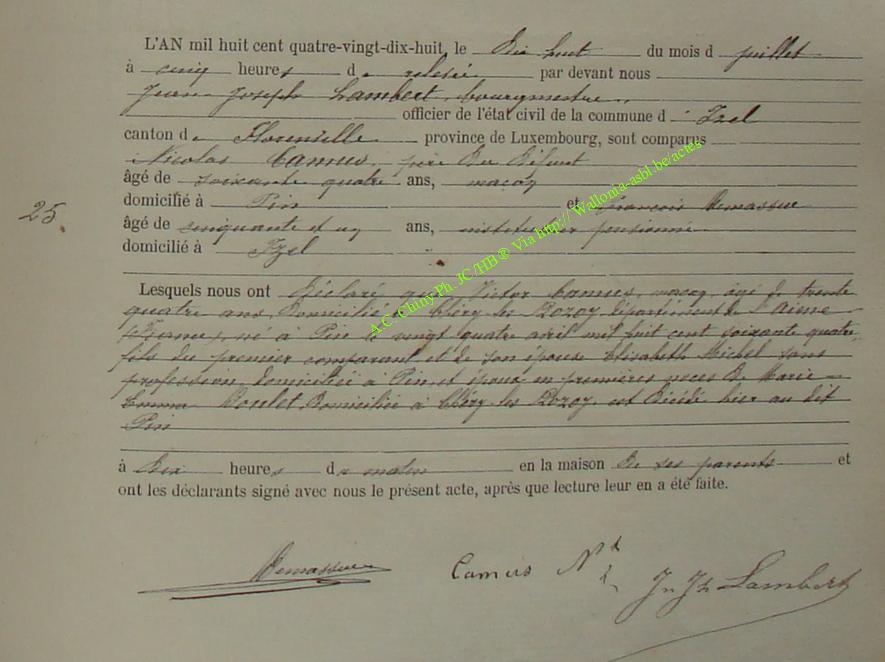 L'AN mil huit cent quatre-vingt-dix-huit, le Dix huit du mois d juillet
à cinq heures de relevée par devant nous
Jean Joseph Lambert, bourgmestre,
officier de l'état civil de la commune d Izel
canton de Florenville province de Luxembourg, sont comparus
Nicolas Camus, père du Défunt
âgé de soixante quatre ans, maçon
domicilié à Pin et François Demasseux
25
âgé de cinquante et un ans, instituteur pensionné
domicilié à Izel
Lesquels nous ont Déclaré que Victor Camus, maçon, âgé de trente
quatre ans, Domicilié à Chéry les Rozoy, département de l'aisne
(France), né à Pin le vingt quatre avril mil huit cent soixante quatre,
fils du premier comparant et de son épouse Elisabeth Michel sans
profession, domiciliée à Pin, et époux en premières noces de Marie
Emma Doulet, Domiciliée à Chéry les Rozoy, est Décédé hier au dit
Pin
à Dix heures du matin en la maison De ses parents et
ont les déclarants signé avec nous le présent acte, après que lecture leur en a été faite.
Camus Nas
Jn Jh Lambert
A.C. Chiny Ph. JC/HB ® Via http://Wallonia-asbl.be/actes